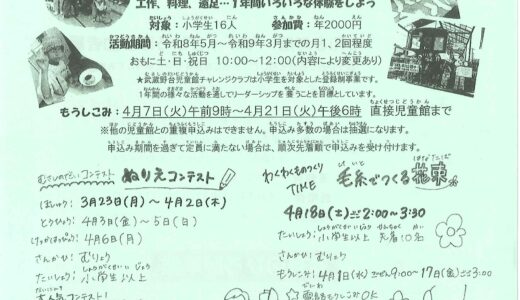 工作、料理、遠足…1年間いろいろな体験をしよう
対象：小学生16人　参加費：年2000円
活動期間：令和8年5月～令和9年3月までの月1、2回程度
おもに土・日・祝日　10:00～12:00(内容により変更あり)
★武蔵野台児童館チャレンジクラブは小学生を対象とした登録制事業です。
1年間の様々な活動を通してリーダーシップを養うことを目標としています。
もうしこみ：4月7日(火)午前9時～4月21日(火)午後6時　直接児童館まで
※他の児童館との重複申込みはできません。申込み多数の場合は抽選になります。
申込み期間を過ぎて定員に満たない場合は、順次先着順で申込みを受け付けます。
むさしのだいコンテスト
ぬりえコンテスト
ぼしゅう：3月23日(月)～4月2日(木)
とうひょう：4月3日(金)～5日(日)
けっかはっぴょう：4月6日(月)
さんかひ：むりょう
たいしょう：小学生以上
わくわくものづくりTIME
毛糸でつくる花束
4月18日(土)ごご2:00～3:30
たいしょう：小学生以上　先着10名
さんかひ：むりょう
もうしこみ：4月1日(水)ごぜん9:00～17日(金)ごご